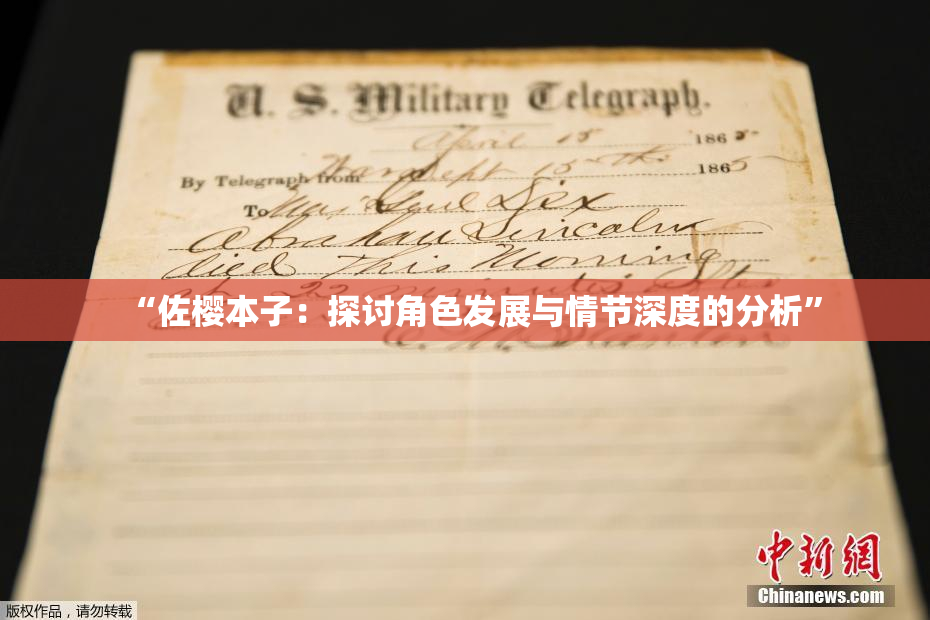 U. S. Military Telegraph.
April 15 1865
By Telegraph from War Dept 15th 1865
To Maj Genl Dix
Abraham Lincoln
died This Morning
at 22 minutes after
“佐樱本子：探讨角色发展与情节深度的分析”
E. M. Stanton
中新网
Chinanews.com
版权作品，请勿转载